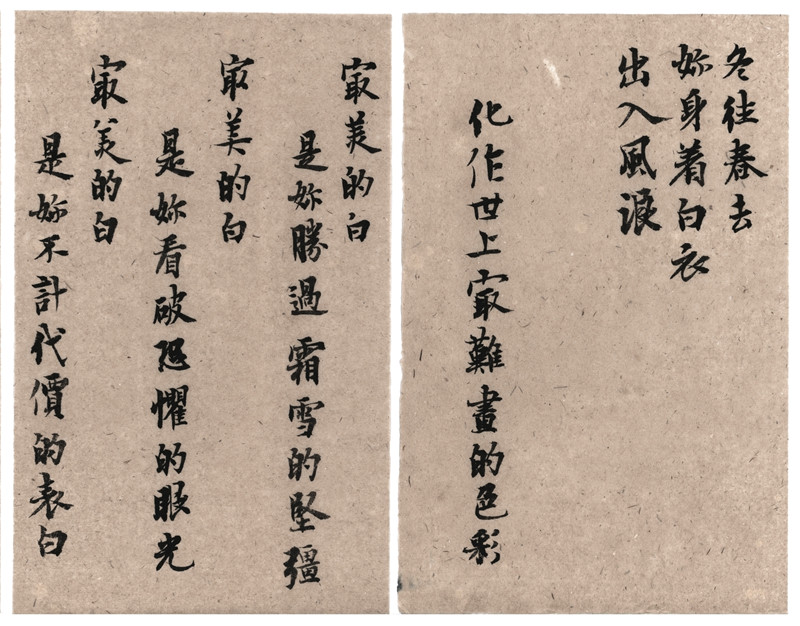 冬往春去
妳身着白衣
出入風淚
化作世上㝡難畫的色彩
㝡美的白
是妳勝過霜雪的堅彊
㝡美的白
是妳看破恐懼的眼光
㝡美的白
是妳不計代價的表白